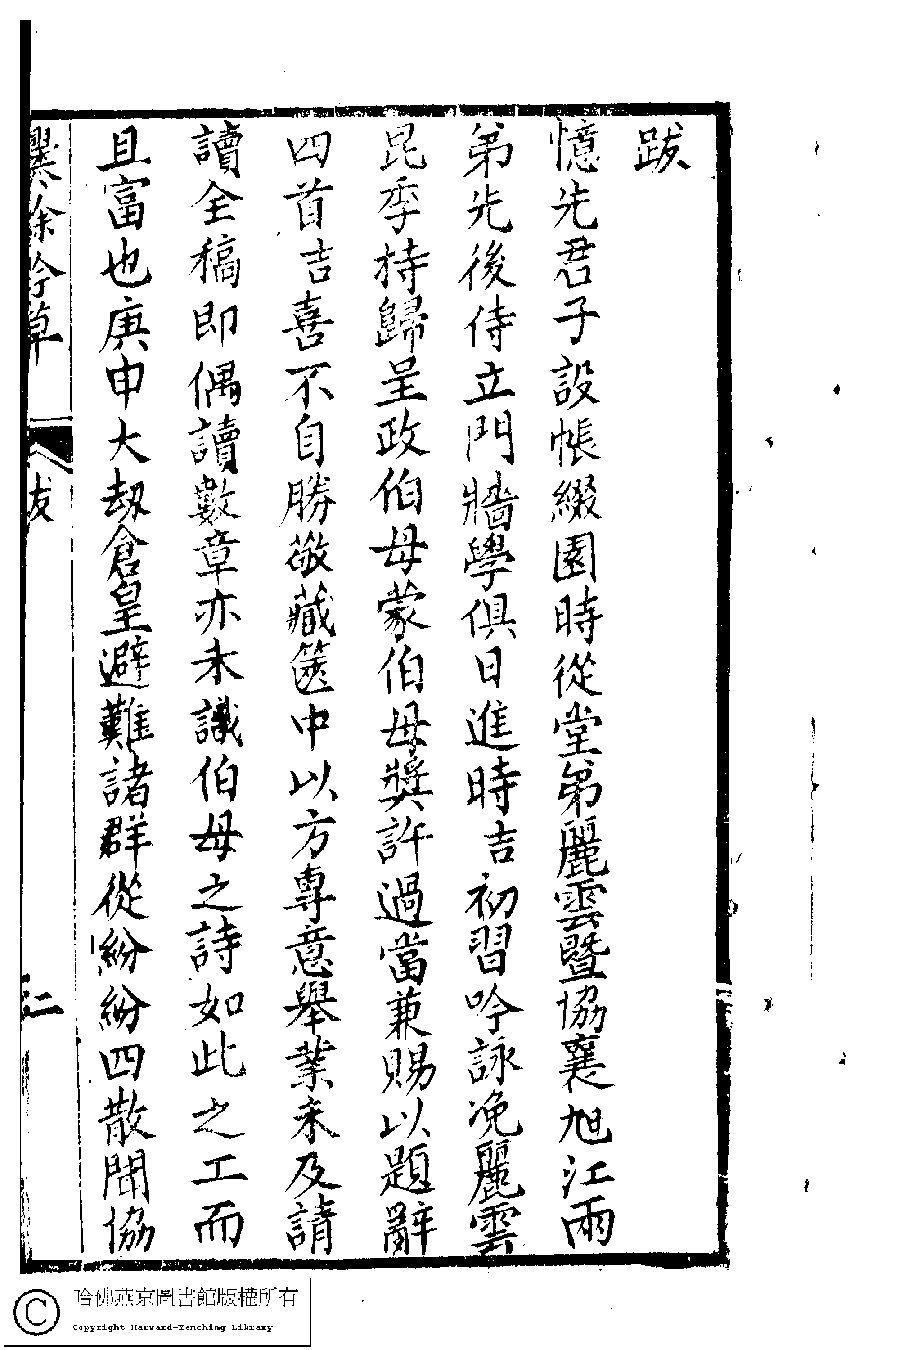 跋
憶先君子設帳綴園時從堂弟麗雲暨協襄旭江兩
弟先後侍立門牆學俱日進時吉初習吟詠浼麗雲
昆季持歸呈政伯母蒙伯母獎許過當兼賜以題辭
四首吉喜不自勝敬藏篋中以方專意舉業未及請
讀全稿即偶讀數章亦未識伯母之詩如此之工而
且富也庚申大刼倉皇避難諸群從紛紛四散聞協
爨餘吟草
跋
二
哈佛燕京圖書館版權所有
Copyright Harvard-Yenching Library